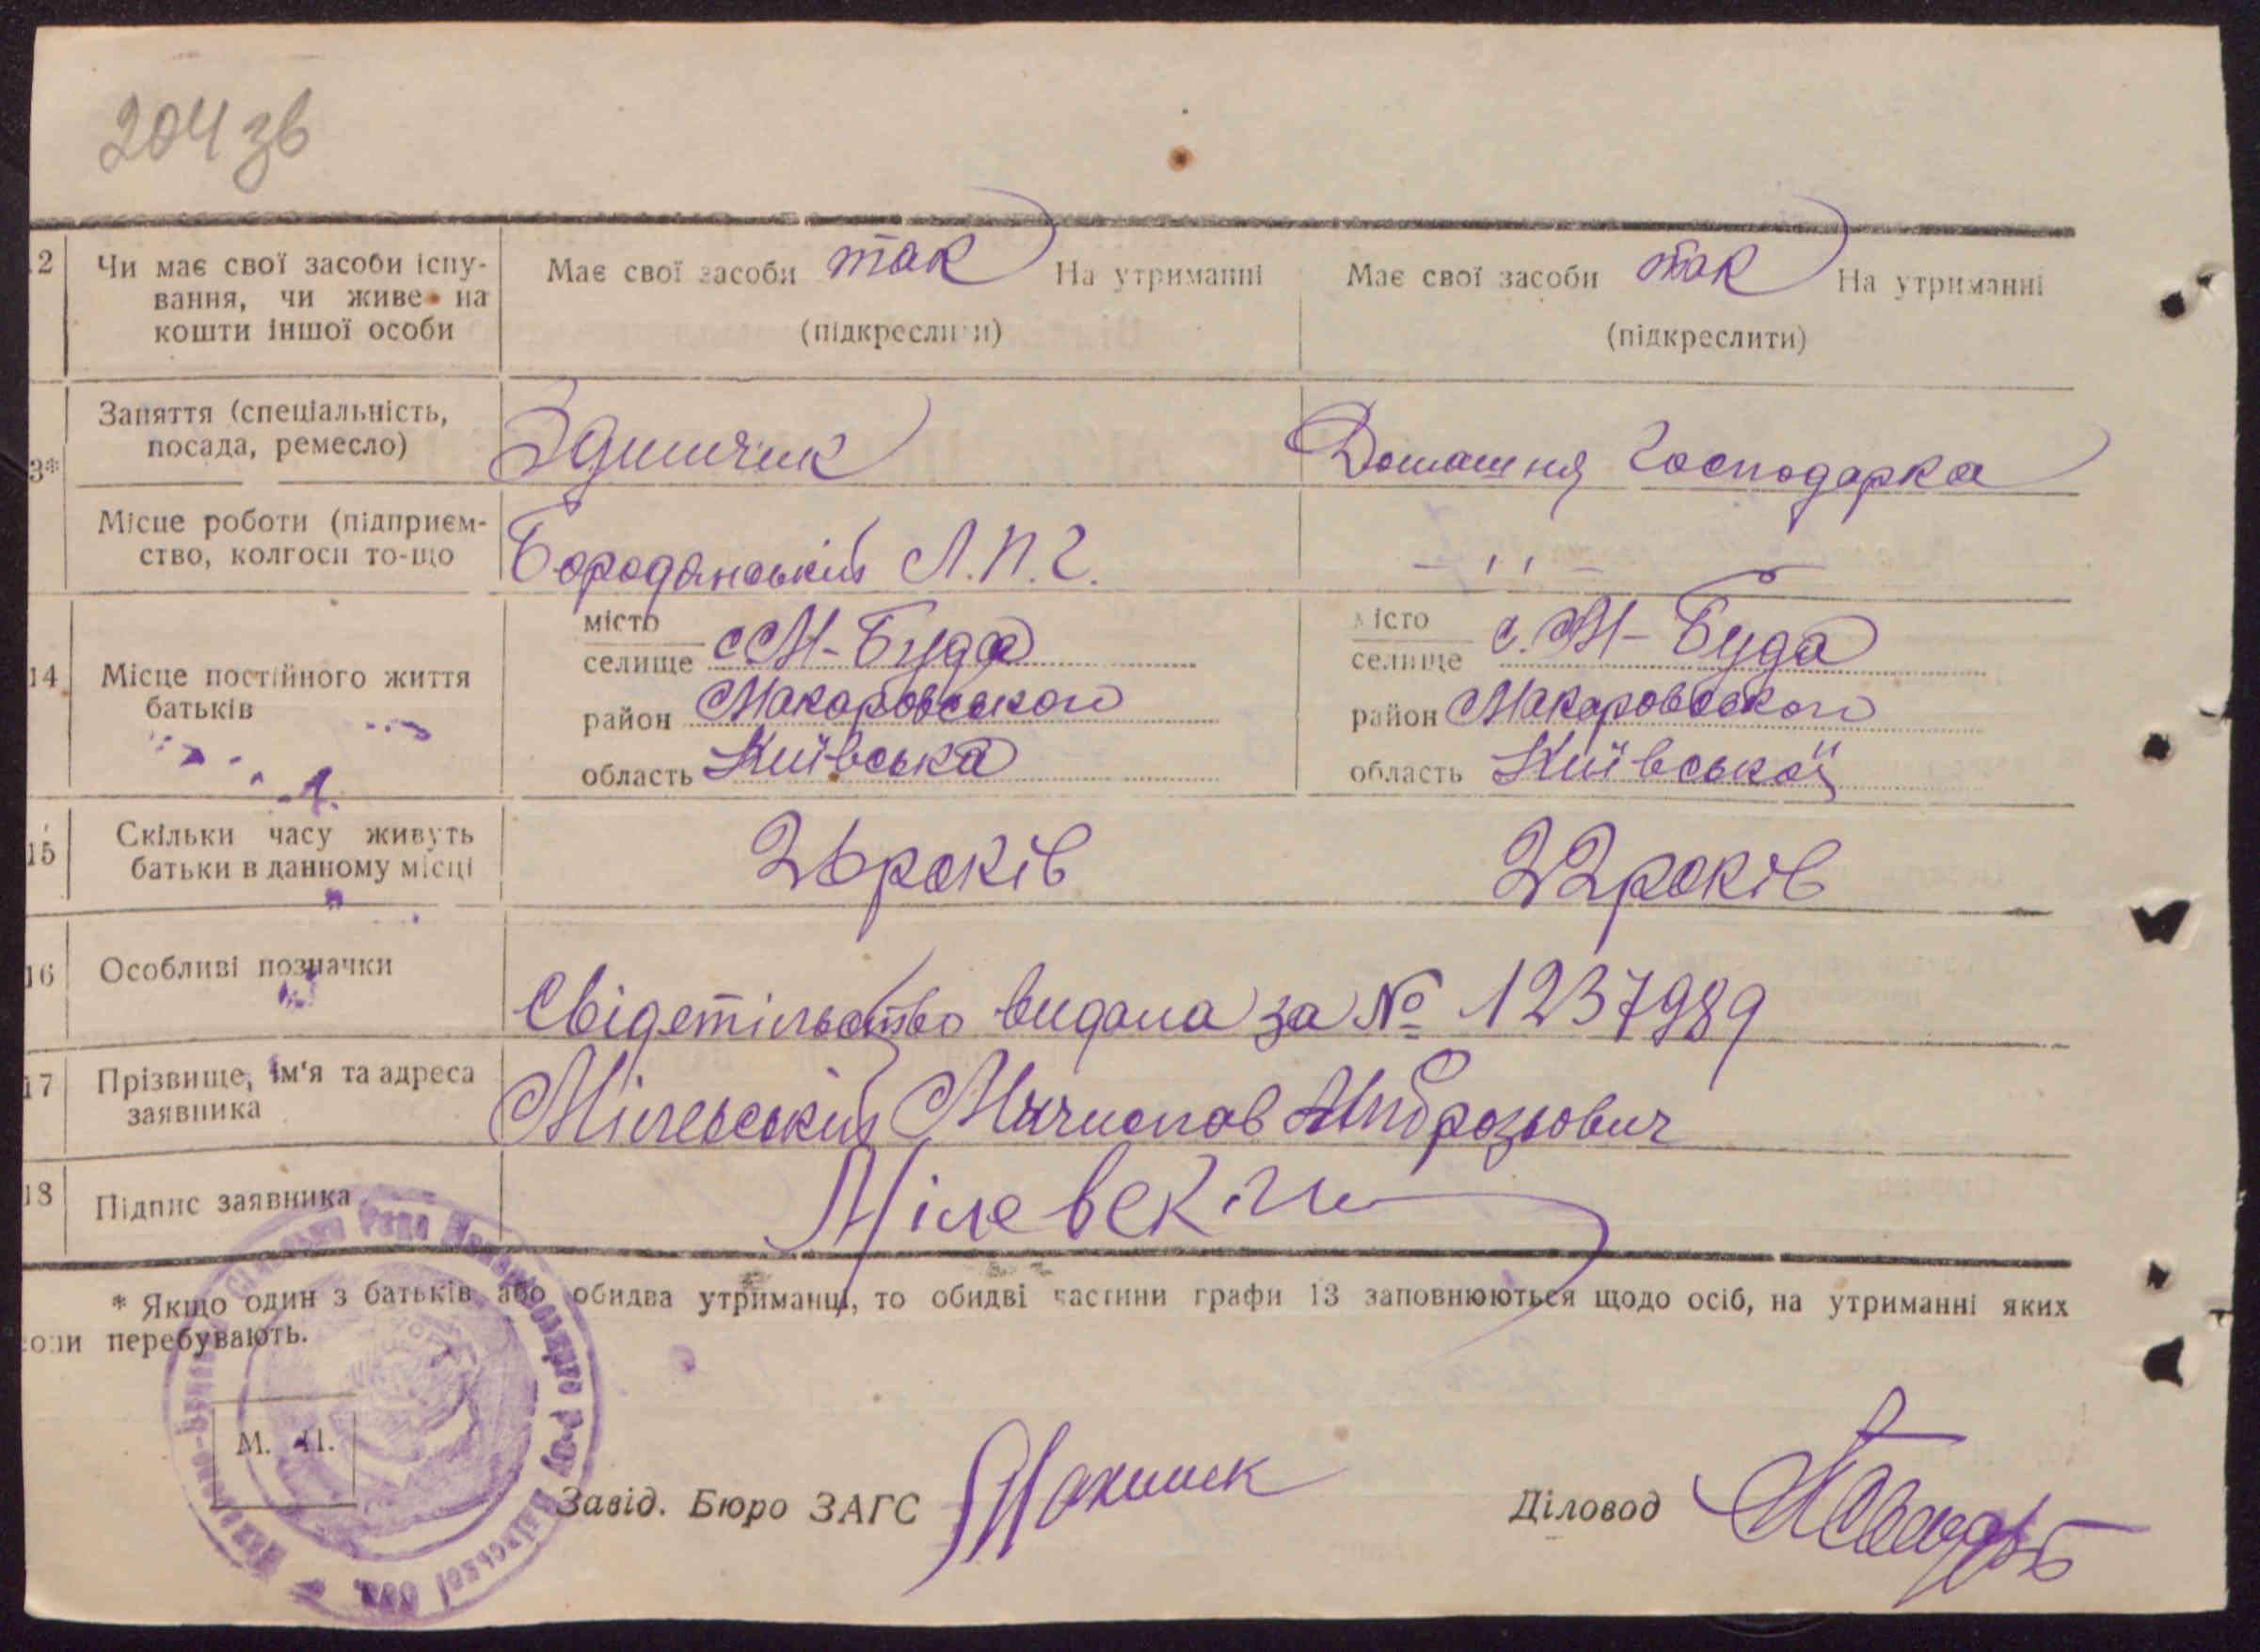 204 зв
12 Чи має свої засоби існу-
вання, чи живе на
кошти іншої особи
Має свої засоби так На утриманні
(підкреслити)
Має свої засоби так На утриманні
(підкреслити)
13* Заняття (спеціальність,
посада, ремесло)
Домашня Господарка
Місце роботи (підприєм-
ство, колгосп то-що
Бородянський Л.П.Г.
- " -
14 Місце постійного життя
батьків
місто
селище с М-Буда
район Макаровского
область Київська
місто
селище с. М-Буда
район Макаровского
область Київської
15 Скільки часу живуть
батьки в данному місці
26 років
22 років
16 Особливі позначки
Свідетільство видана за № 1237989
17 Прізвище, ім'я та адреса
заявника
Мілевський
18 Підпис заявника
* Якщо один з батьків або обидва утриманці, то обидві частини графи 13 заповнюються щодо осіб, на утриманні яких
вони перебувають.
М. П.
Завід. Бюро ЗАГС
Діловод